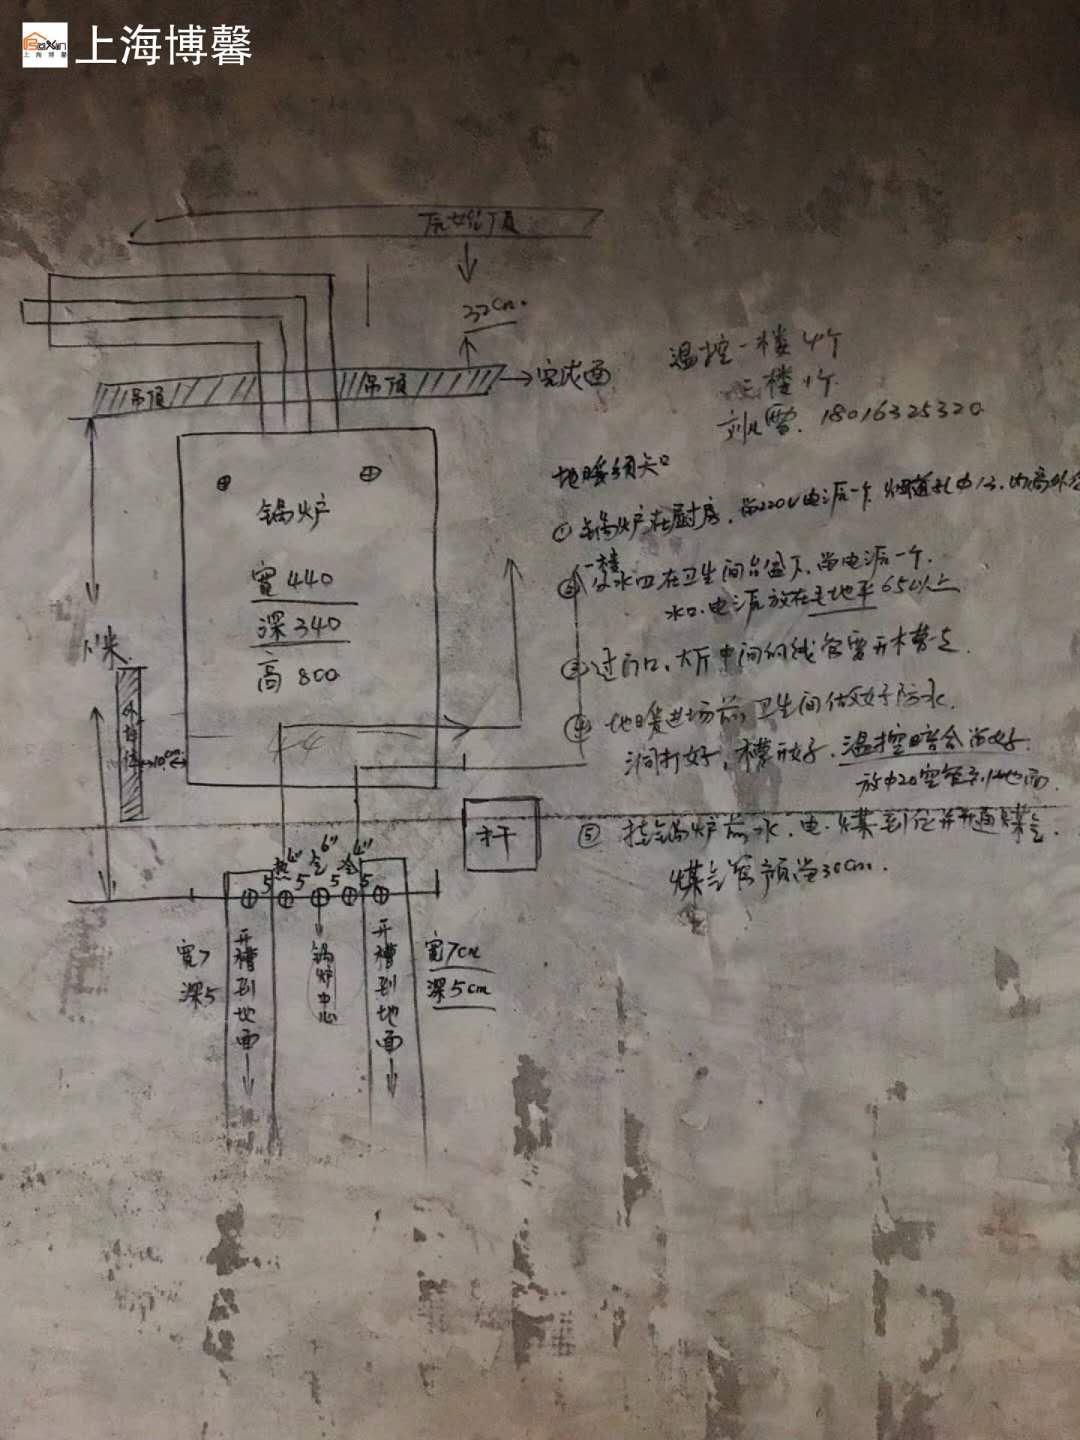 上海博馨
上海博馨
原始顶
32cm.
吊顶
吊顶
完成面
温控一楼4个
二楼1个
18016325320
锅炉
宽440
深340
高800
10cm
地暖须知
①锅炉在厨房,留220V电源一个.烟道孔φ13.内高外
②分水四在卫生间台盆下,留电源一个.
一楼
水口.电源放在毛地平650以上
③过门口,大厅中间的线管需开槽
④地暖进场前卫生间做好防水.
洞打好,槽开好.温控暗合留好.
放φ20空管到地面.
⑤挂锅炉前水.电.煤到位并开通煤气.
煤气管预留30cm.
热4" 冷6" 冷4"
5 5 5 5
宽7
深5
开槽到地面
锅炉中心
开槽到地面
宽7cm
深5cm